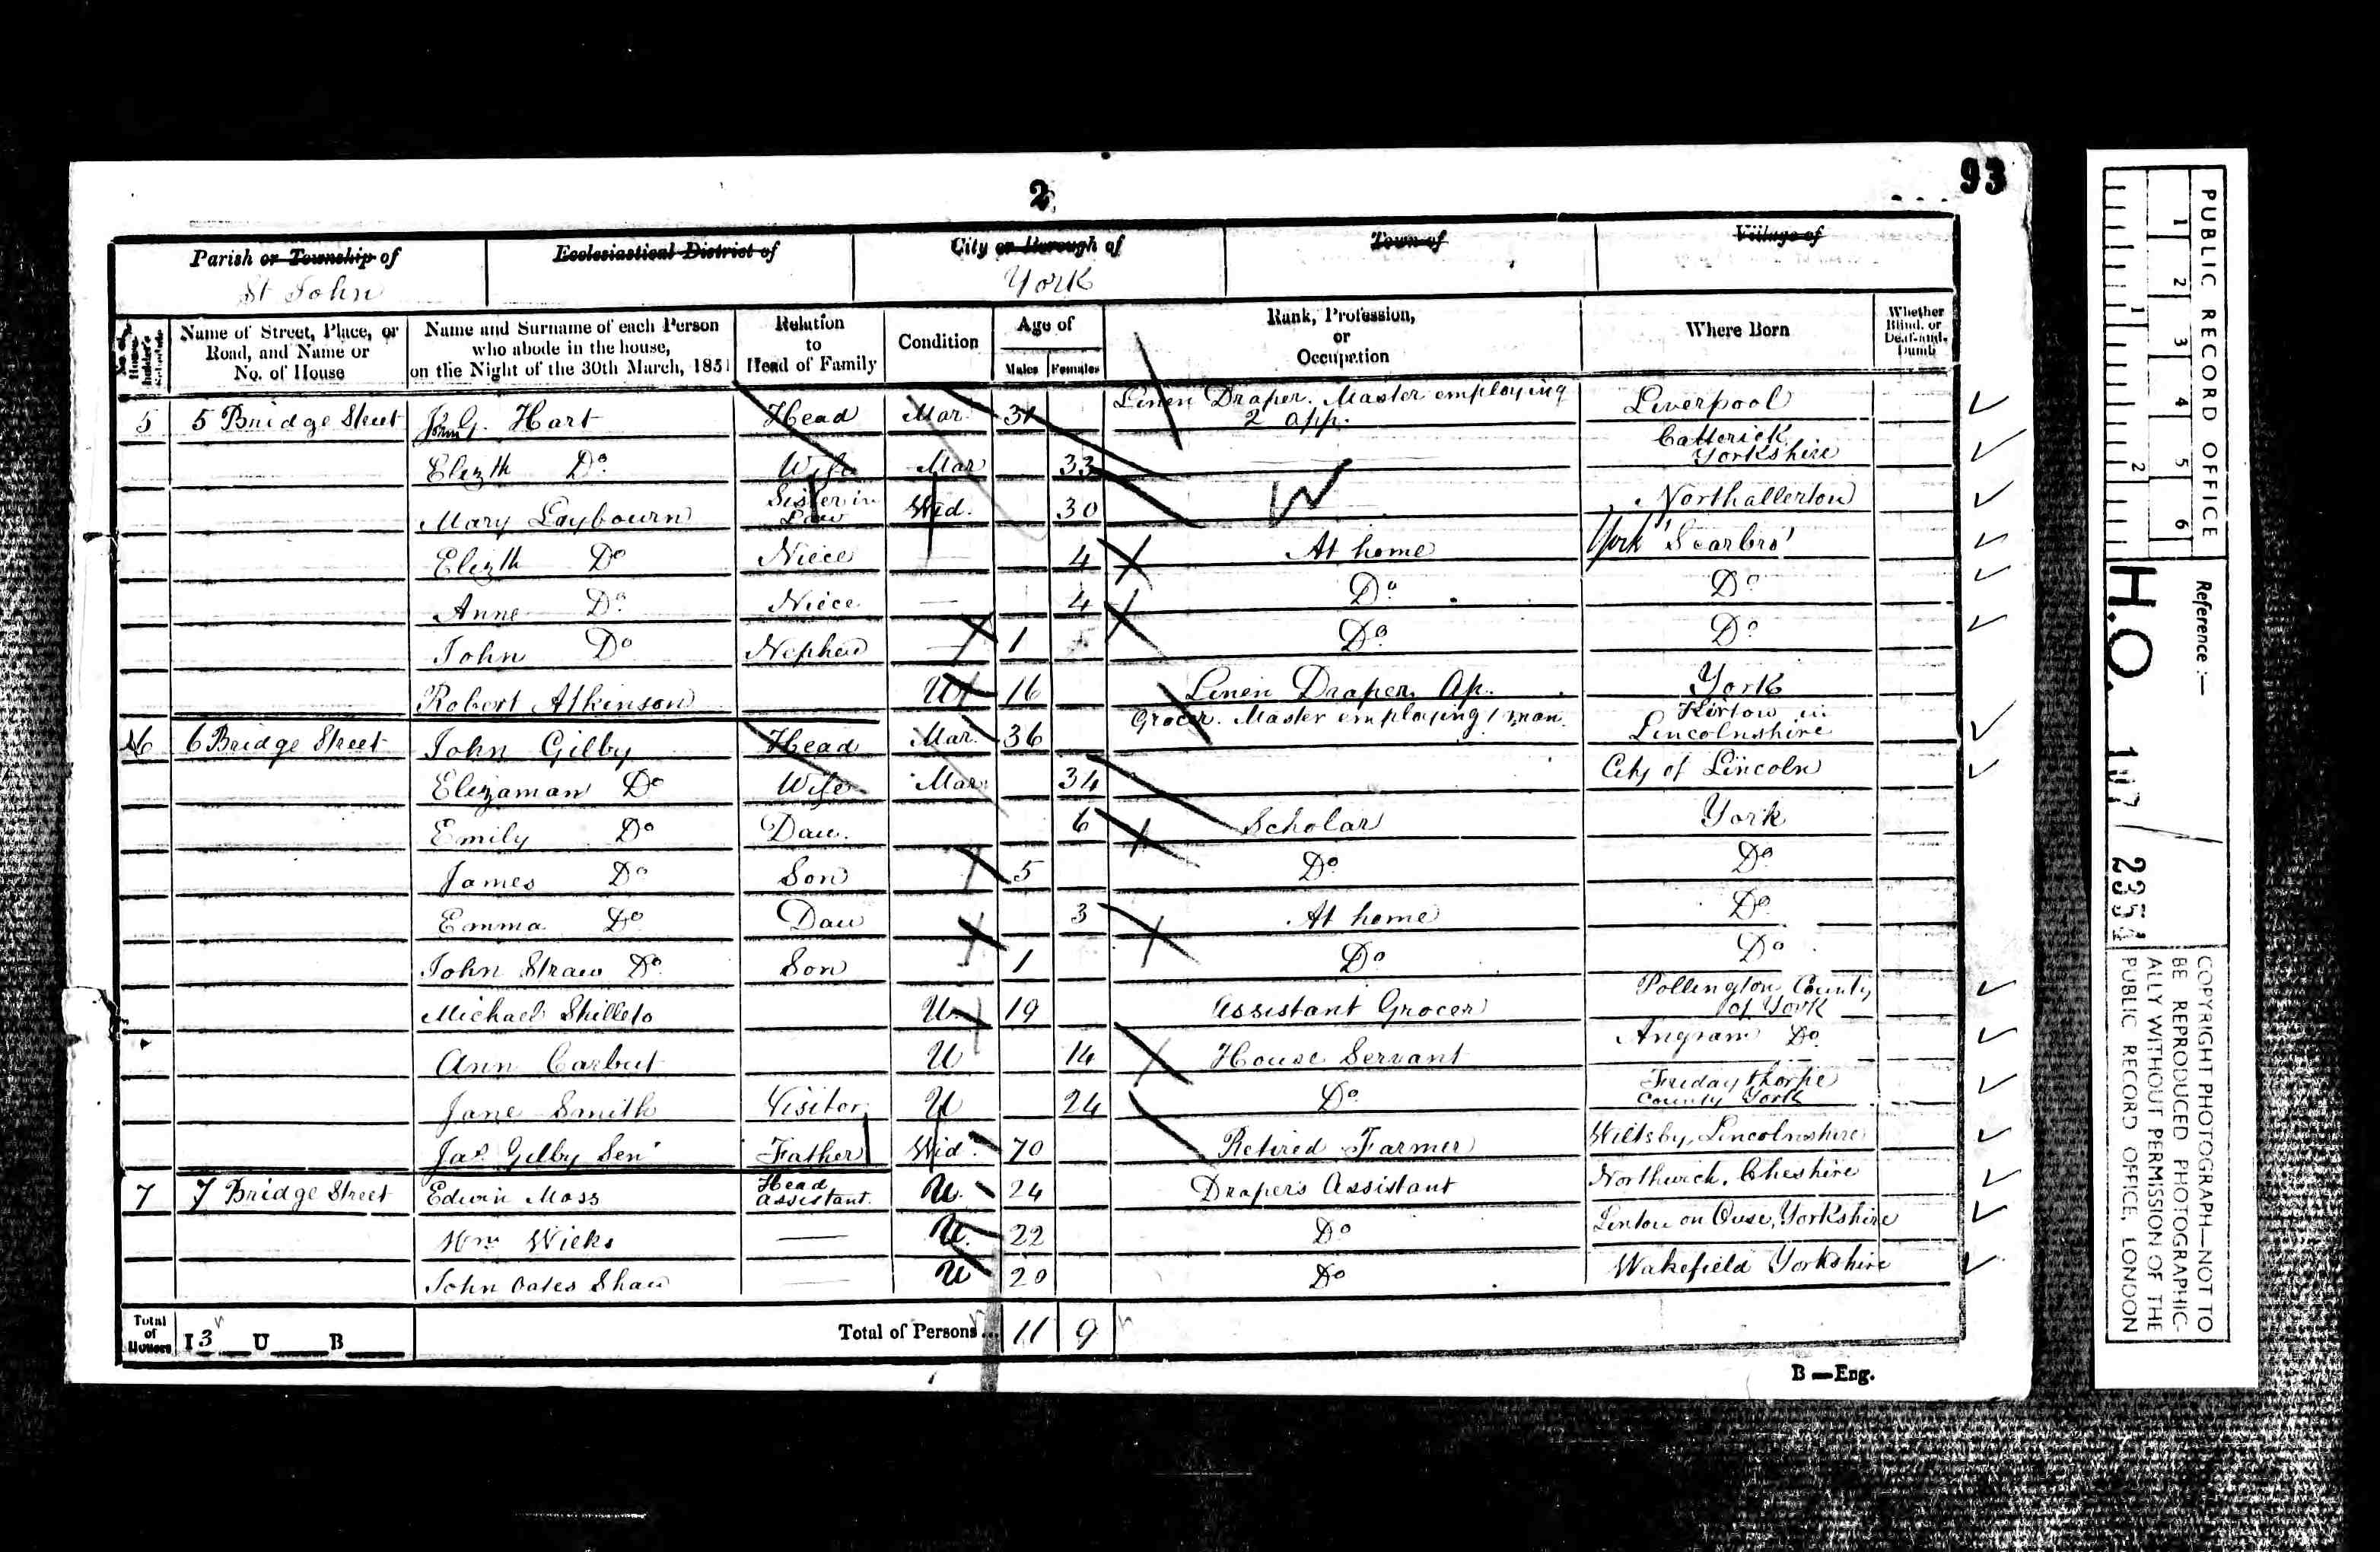 2
93
Parish or Township of
St John
Ecclesiastical District of
City or Borough of
York
Town of
Village of
No. of House-holder's Schedule
Name of Street, Place, or Road, and Name or No. of House
Name and Surname of each Person who abode in the house, on the Night of the 30th March, 1851
Relation to Head of Family
Condition
Age of
Males Females
Rank, Profession, or Occupation
Where Born
Whether Blind, or Deaf-and-Dumb
5 5 Bridge Street John G. Hart Head Mar. 31 Linen Draper. Master employing 2 app. Liverpool
Elizth Do. Wife Mar 33 Catterick Yorkshire
Mary Laybourn Sister in Law Wid. 30 W Northallerton
Elizth Do Niece 4 At home York Scarbro'
Anne Do. Niece 4 Do. Do.
John Do Nephew 1 Do Do.
Robert Atkinson U 16 Linen Draper. Ap. York
6 6 Bridge Street John Gilby Head Mar. 36 Grocer. Master employing 1 man. Kirton in Lincolnshire
Elizaman Do Wife Mar. 34 City of Lincoln
Emily Do Dau. 6 Scholar York
James Do Son 5 Do. Do
Emma Do. Dau 3 At home Do.
John Straw Do. Son 1 Do Do
Michael Shilleto U. 19 Assistant Grocer Pollington County of York
Ann Carbut U 14 House Servant Angram Do.
Jane Smith Visitor U 24 Do. Fridaythorpe County York
Jas. Gilby Senr Father Wid. 70 Retired Farmer Lincolnshire
7 7 Bridge Street Edwin Moss Head Assistant. U. 24 Drapers Assistant Northwich, Cheshire
Wm. Wicks U. 22 Do Linton on Ouse, Yorkshire
John Oates Shaw U 20 Do Wakefield Yorkshire
Total of Houses I 3 U B Total of Persons... 11 9
B—Eng.
PUBLIC RECORD OFFICE
1 2 3 4 5 6
1 2
Reference :—
H.O. 107 / 2354
COPYRIGHT PHOTOGRAPH—NOT TO
BE REPRODUCED PHOTOGRAPHIC-
ALLY WITHOUT PERMISSION OF THE
PUBLIC RECORD OFFICE, LONDON